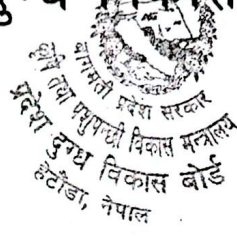 बागमती प्रदेश सरकार
कृषि तथा पशुपन्छी विकास मन्त्रालय
प्रदेश दुग्ध विकास बोर्ड
हेटौंडा, नेपाल